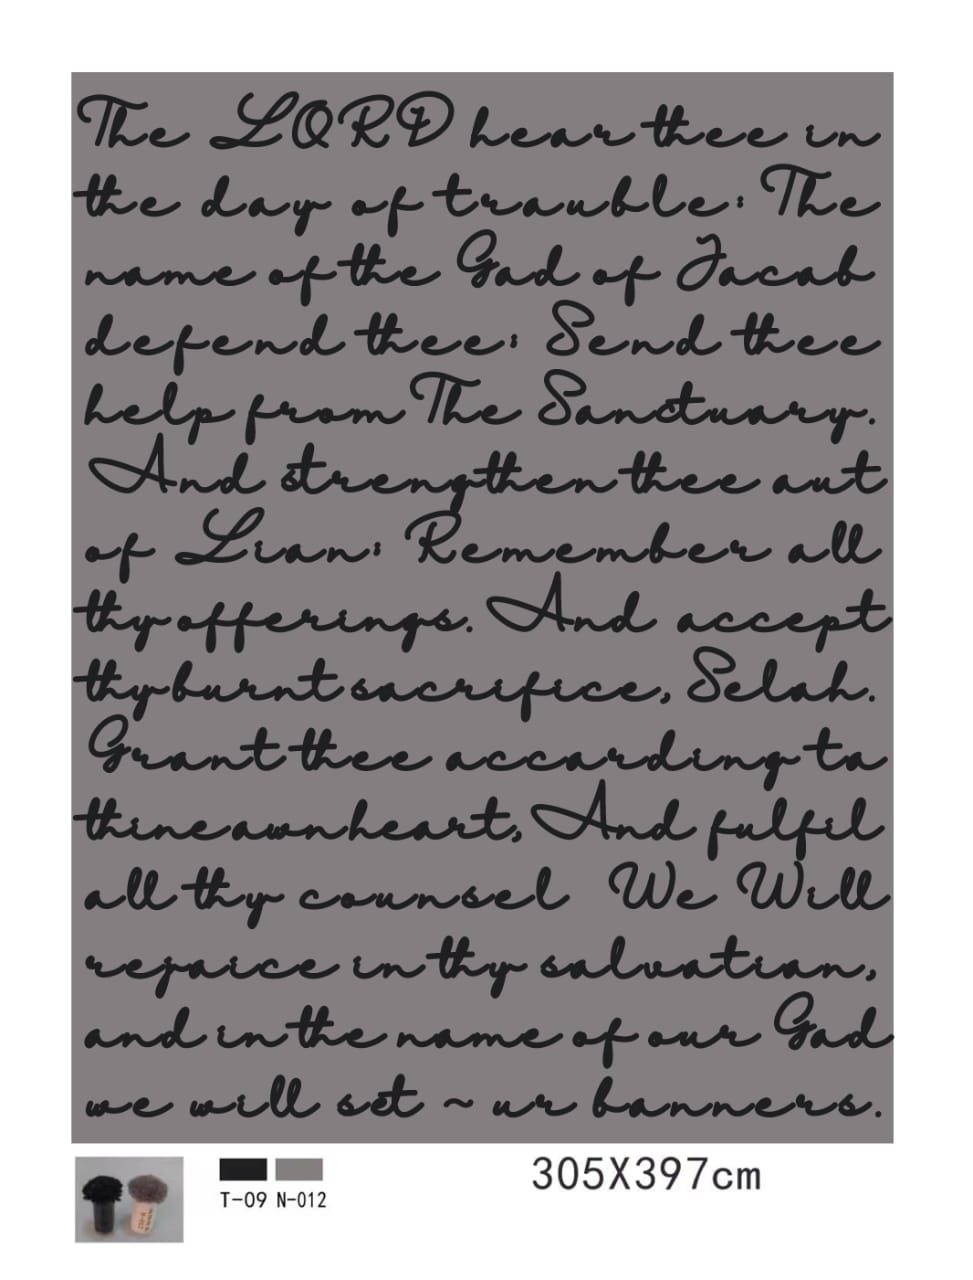 The LORD hear thee in
the day of trauble: The
name of the Gad of Jacab
defend thee: Send thee
help from The Sanctuary.
And strengthen thee aut
of Lian: Remember all
thy offerings. And accept
thy burnt sacrifice, Selah.
Grant thee accarding ta
thine awn heart, And fulfil
all thy counsel We Will
rejaice in thy salvatian,
and in the name of our Gad
we will set ~ ur banners.
T-09 N-012
305X397cm